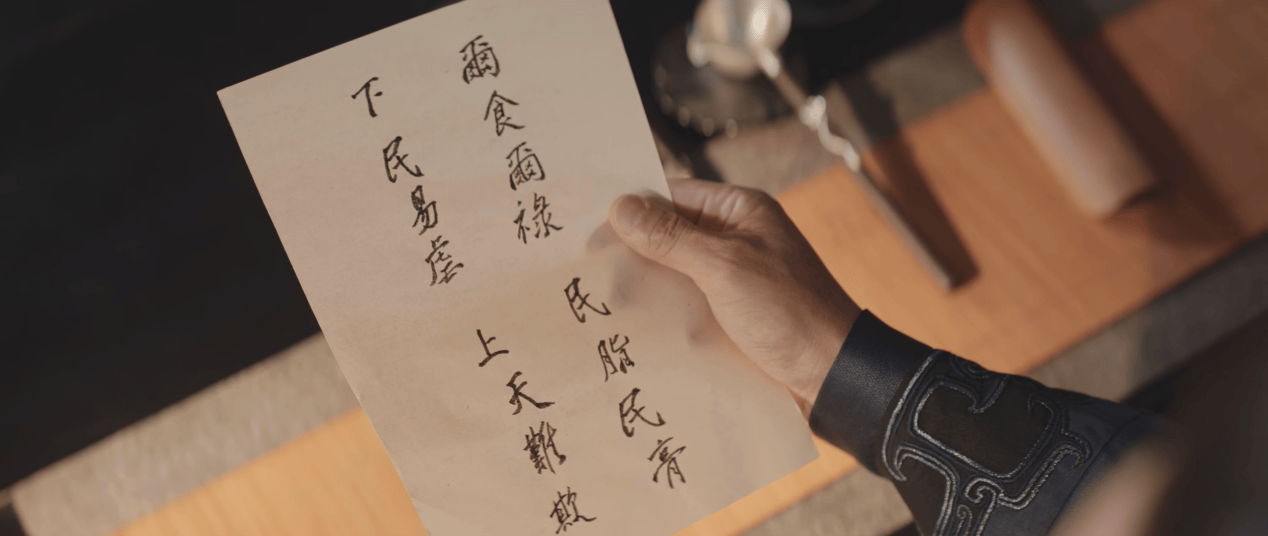 爾食爾祿 民脂民膏
下民易虐 上天難欺